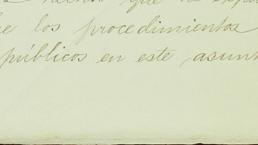 hecho que no
los procedimientos
públicos en este asun